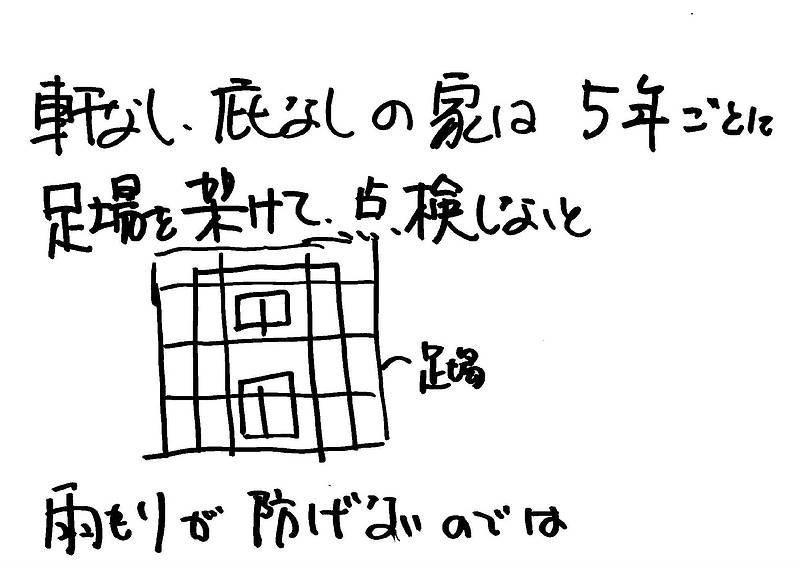 軒なし、庇なしの家は 5年ごとに
足場を架けて、点検しないと
足場
雨もりが 防げないのでは